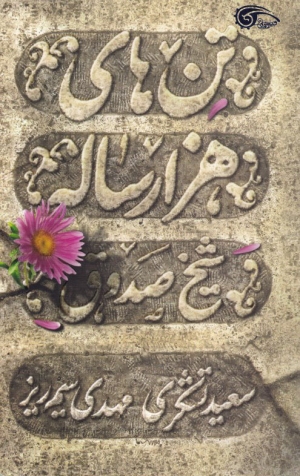 تن های
هزار ساله
شیخ صدوق
سعید تشکری مهدی سیم ریز